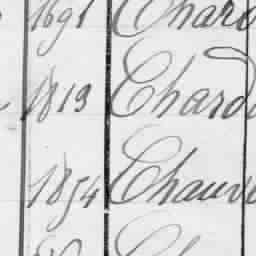 1691 Chard
1813 Chard
1854 Chauv